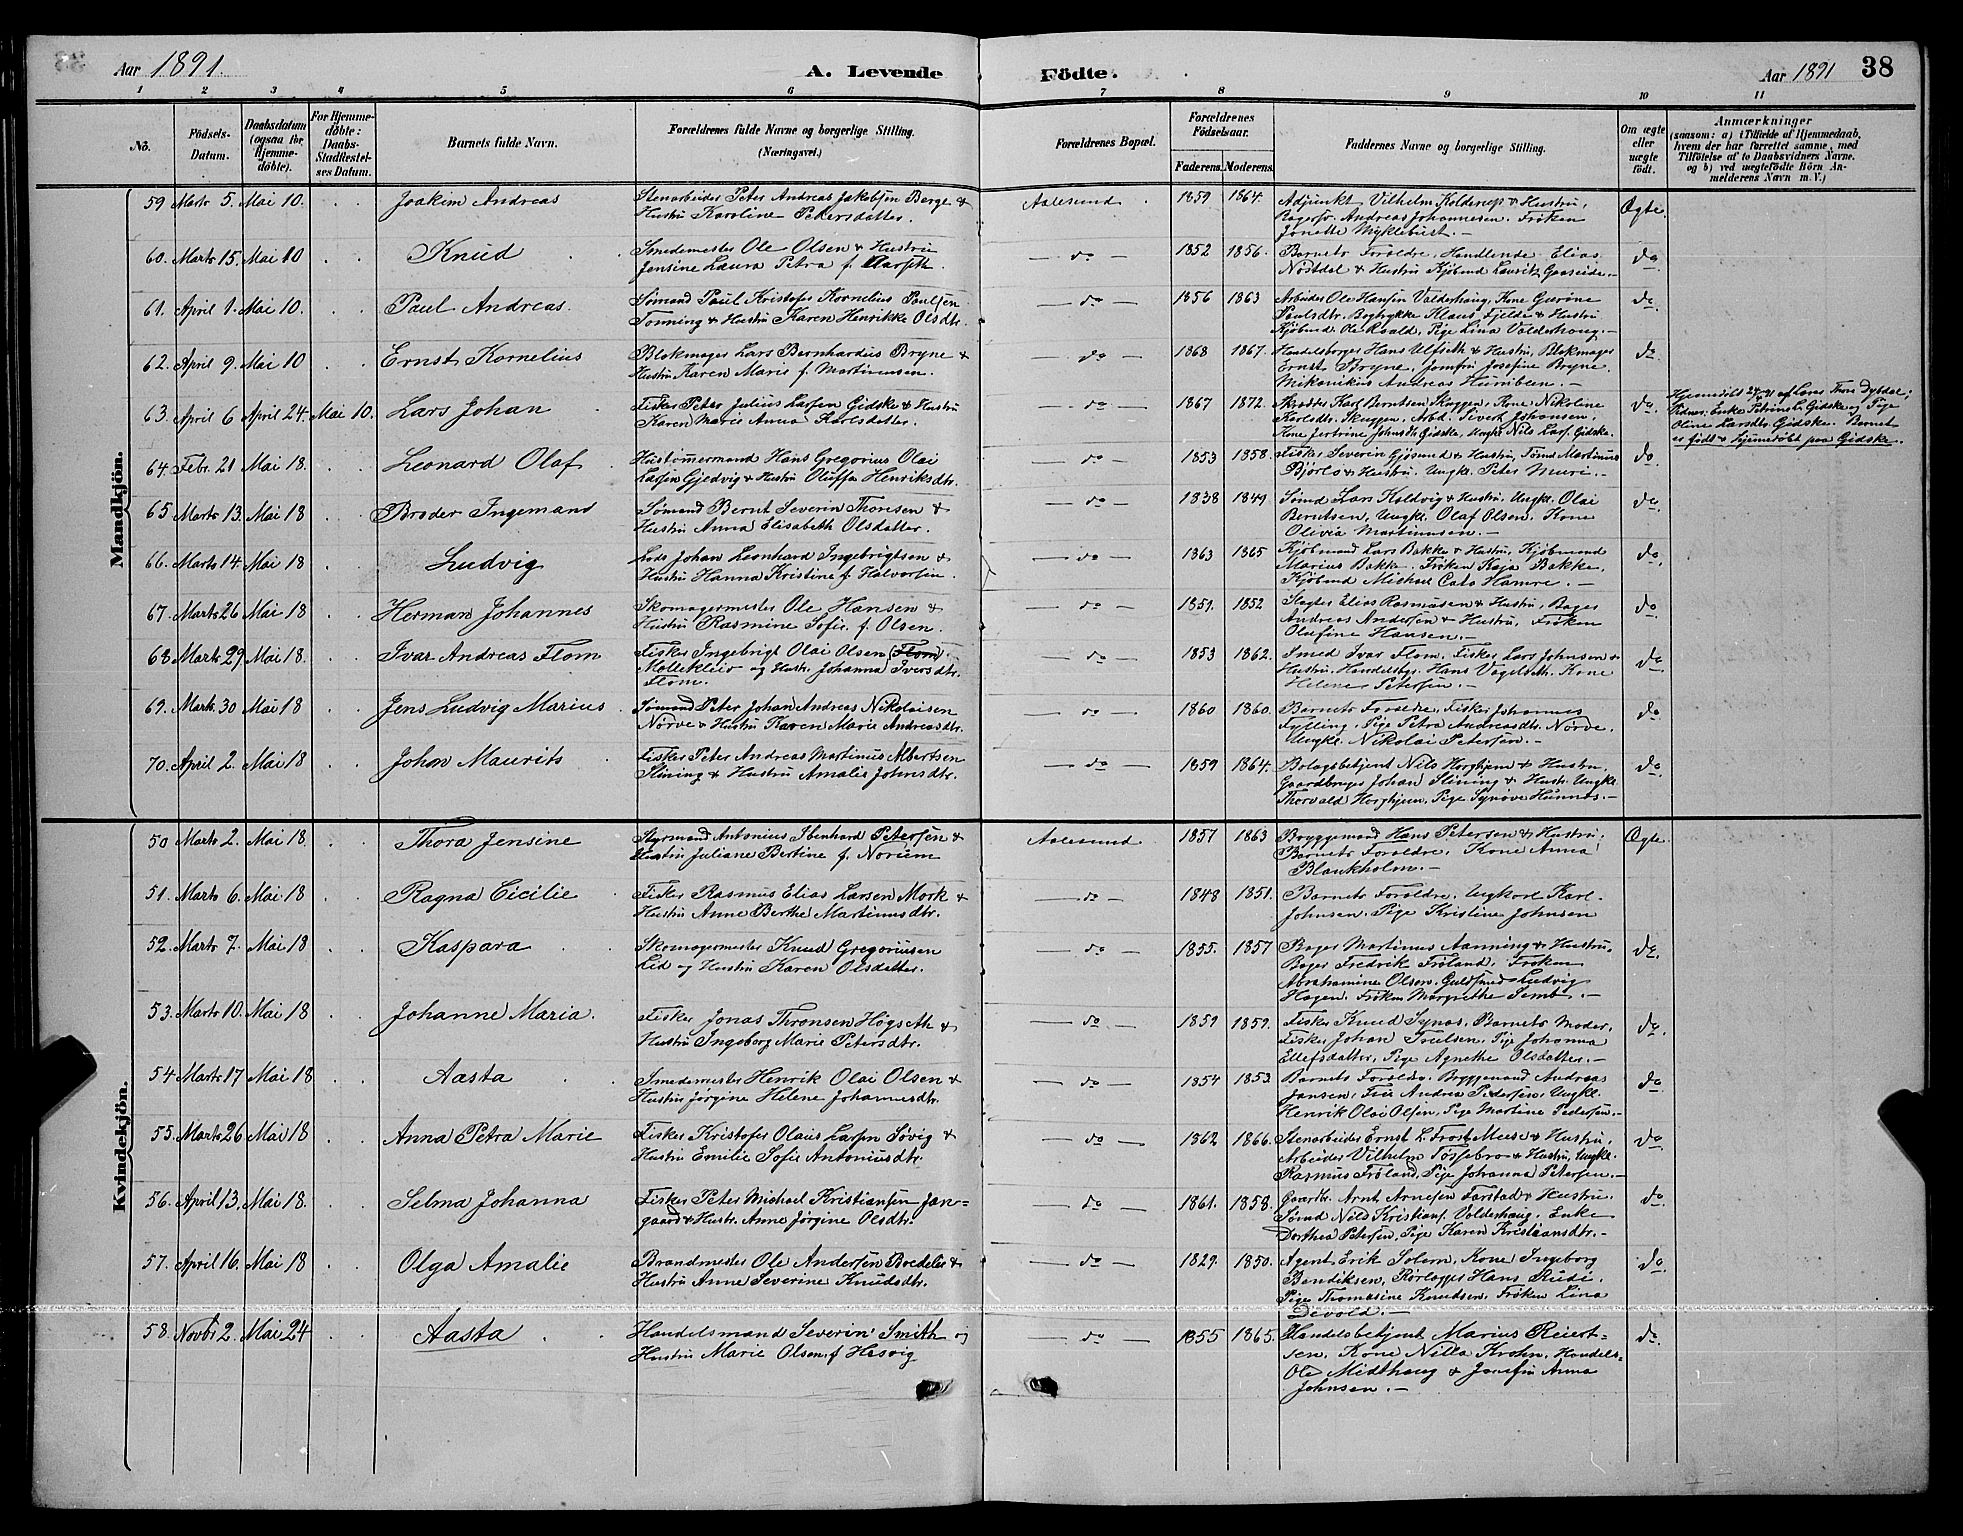 Aar 1891. A. Levende Födte. Aar 1891 38
1 2 3 4 5 6 7 8 9 10 11
No. Födsels-Datum. Daabsdatum (ogsaa for Hjemme-döbte). For Hjemme-döbte: Daabs-Stadfæstel-ses Datum. Barnets fulde Navn. Forældrenes fulde Navne og borgerlige Stilling. (Næringsvei.) Forældrenes Bopæl. Forældrenes Födselsaar. Faderens. Moderens. Faddernes Navne og borgerlige Stilling. Om ægte eller uægte födt. Anmærkninger (saasom: a) i Tilfælde af Hjemmedaab, hvem der har forrettet samme, med Tilföielse af to Daabsvidners Navne, og b) ved uægtefödte Börn An-melderens Navn m. V.)
Mandkjön.
59 Marts 5. Mai 10. Joakim Andreas Stenarbeider Peter Andreas Jakobsen Berge & Aalesund. 1859 1864. Adjunkt Vilhelm Kolderup & Hustru, Ægte.
Hustru Karoline Petersdatter. Bagersv. Andreas Johannesen. Frøken
Jonette Myklebust. —
60. Marts 15. Mai 10 Knud Smedemester Ole Olsen & Hustru — do — 1852 1856. Barnets Forældre, Handlende Elias do
Jensine Laura Petra f. Aarseth. Nøstdal & Hustru Kjøbmd Laurik Gaaseide. —
61. April 1. Mai 10. Paul Andreas. Sømand Paul Kristofer Kornelius Paulsen — do — 1856 1863 Arbeider Ole Hansen Valderhaug, Kone Gurine do
Tonning & Hustru Karen Henrikke Olsdtr. Paulsdtr. Bogtrykker Klaus Fjelde & Hustru
Kjøbmd. Ole Roald, Pige Lina Valderhaug. —
62. April 9. Mai 10 Ernst Kornelius Blokmager Lars Bernhardus Bryne & — do — 1868 1867. Handelsborger Hans Ulfseth & Hustru, Blokmager do
Hustru Karen Marie f. Martinussen. Ernst Bryne, Jomfru Josefine Bryne,
Mekanikus Andreas
63. April 6 April 24. Mai 10. Lars Johan Fisker Peter Julius Larsen Gidske & Hustru — do — 1867 1872. Skrædder Karl Berntsen Skuggen, Kone Nikoline do. Hjemmedøbt 24/4 91 af Lars Thore Dybdal;
Karen Marie Anna Karlsdatter. Karlsdtr. Skuggen. Arbd. Sivert Johansen, Vidner: Enke Petrine Gidske og Pige
Kone Jertrine Johnsdtr. Gidske, Ungkr. Nils Lars. Gidske. Oline Larsdtr Gidske. Barnet
er født & hjemmedøbt paa Gidske.
64. Febr. 21 Mai 18. Leonard Olaf Hustømmermand Hans Gregorius Olai — do — 1853 1858. Fisker Severin Gjøsund & Hustru, Sømd Martinus do
Larsen Gjedvig & Hustru Oluffa Henriksdtr. Bjorlo & Hustru. Ungk. Peter Muri. —
65 Marts 13. Mai 18 Broder Ingemand Sømand Bernt Severin Thoresen & — do — 1838 1849. Sømd Lars Koldvig & Hustru. Ungk. Olai do.
Hustru Anna Elisabeth Olsdatter. Berntsen, Ungk. Olaf Olsen. Kone
Olivia Martinussen. —
66. Marts 14. Mai 18 Ludvig Lods Johan Leonhard Ingebrigtsen & — do — 1863 1865 Kjøbmand Lars Bakke & Hustru, Kjøbmand do.
Hustru Hanna Kristine f. Halvorsen. Marius Bakke. Frøken Kaja Bakke.
Kjøbmd Michael Cato Hamre. —
67. Marts 26 Mai 18 Herman Johannes Skomagermester Ole Hansen & — do — 1851. 1852 Slagter Elias Rasmusen & Hustru, Bager do
Hustru Rasmine Sofie f. Olsen. Andreas Andersen & Hustru, Frøken
Olufine Hansen. —
68 Marts 29 Mai 18. Ivar Andreas Flom Fisker Ingebrigt Olai Olsen (Flom) — do — 1853 1862. Smed Ivar Flom, Fisker Lars Johnsen & do.
Molleklev og Hustr. Johanna Iversdtr. Hustru. Handelsbgr. Hans Vogelseth. Kone
Flom. Helene Petersen. —
69. Marts 30 Mai 18 Jens Ludvig Marius. Sømand Peter Johan Andreas Nikolaisen — do — 1860 1860. Barnets Forældre, Fisker Johannes do
Nørve & Hustru Karen Marie Andreasdtr. Fylling, Pige Petra Andreasdtr. Nørve,
Ungk. Nikolai Petersen. —
70. April 2. Mai 18 Johan Maurits Fisker Peter Andreas Martinus Albertsen — do — 1859 1864. Bolagsbetjent Nils Horghjem & Hustru, do
Slining & Hustru Amalie Johnsdtr. Gaardbruger Johan Slining & Hustr. Ungk.
Thorvald Horghjem, Pige Synøve Hunnes. —
Kvindekjön.
50 Marts 2. Mai 18. Thora Jensine Styrmand Antonius Ibenhard Petersen & Aalesund. 1857 1863 Bryggemand Hans Petersen & Hustru, Ægte.
Hustru Juliane Bertine f. Norum Barnets Forældre, Kone Anna
Blankholm. —
51. Marts 6. Mai 18 Ragna Cicilie Fisker Rasmus Elias Larsen Mork & — do — 1848 1851. Barnets Forældre, Ungkarl Karl
Hustru Anne Berthe Martinusdtr. Johnsen. Pige Kristine Johnsen
52. Marts 7. Mai 18 Kaspara Skomagermester Knud Gregoriusen — do — 1855. 1857 Bager Martinus Aanning & Hustru, do.
Lid og Hustru Karen Olsdatter. Bager Fredrik Frøland, Frøken
Abrahamine Olsen. Guldsmed Ludvig
Hagen. Frøken Margrethe Semb. —
53. Marts 10. Mai 18 Johanne Maria. Fisker Jonas Thronsen Høgseth & — do — 1859 1859. Fisker Knud Synes, Barnets Moder, do.
Hustru Ingeborg Marie Petersdtr. Fisker Johan Truelsen, Pige Johanna
Ellefsdatter, Pige Agnethe Olsdatter. —
54 Marts 17 Mai 18 Aasta Smedemester Henrik Olai Olsen & — do — 1854 1853. Barnets Forældre. Bryggemand Andreas do
Hustru Jørgine Helene Johannesdtr. Jansen, Frue Andrea Pedersen. Ungk.
Henrik Olai Olsen, Pige Martine Pedersen. —
55. Marts 26 Mai 18 Anna Petra Marie Fisker Kristofer Olaus Larsen Søvig & — do — 1862 1866. Stenarbeider Ernst L. Frost Meese & Hustru, do
Hustru Emilie Sofie Antoniusdtr. Arbeider Vilhelm Tøssebro & Hustru, Ungk.
Rasmus Frøland, Pige Johanna Petersen. —
56. April 13. Mai 18. Selma Johanna Fisker Peter Michael Kristiansen Jan- — do — 1861. 1858. Gaardbr. Arnt Arnesen Farstad & Hustru. do
gaard & Hustr. Anne Jørgine Olsdtr. Sømd Nils Kristians. Valderhaug, Enke
Dorthea Petersen, Pige Karen Kristiansdtr. —
57. April 16. Mai 18 Olga Amalie Brandmester Ole Andersen Boedeler & — do — 1829. 1850. Agent Erik Solem, Kone Ingeborg do.
Hustru Anne Severine Knudsdtr. Bendiksen, Rørlægger Hans Rudi.
Pige Thomasine Knudsen, Frøken Lina
Devold. —
58. Novbr 2. Mai 24 Aasta Handelsmand Severin Smith og — do — 1855 1865. Handelsbetjent Marius Reiert- do
Hustru Marie Olsen f. Hesvig sen, Kone Nilla Krohn, Handels-
Ole Midthaug & Jomfru Anna
Johnsen. —